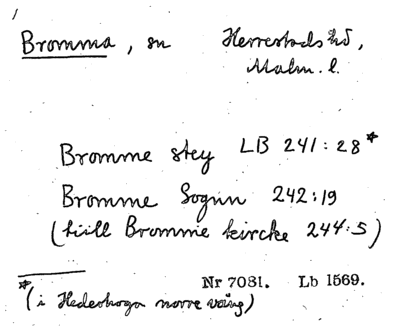 Bromma, sn Herrestads hd,
Malm. l.
Bromme stey LB 241:28*
Bromme Sognn 242:19
(tiill Bromme kircke 244:5)
Nr 7031. Lb 1569.
*(i Hedeskoga norre vång)